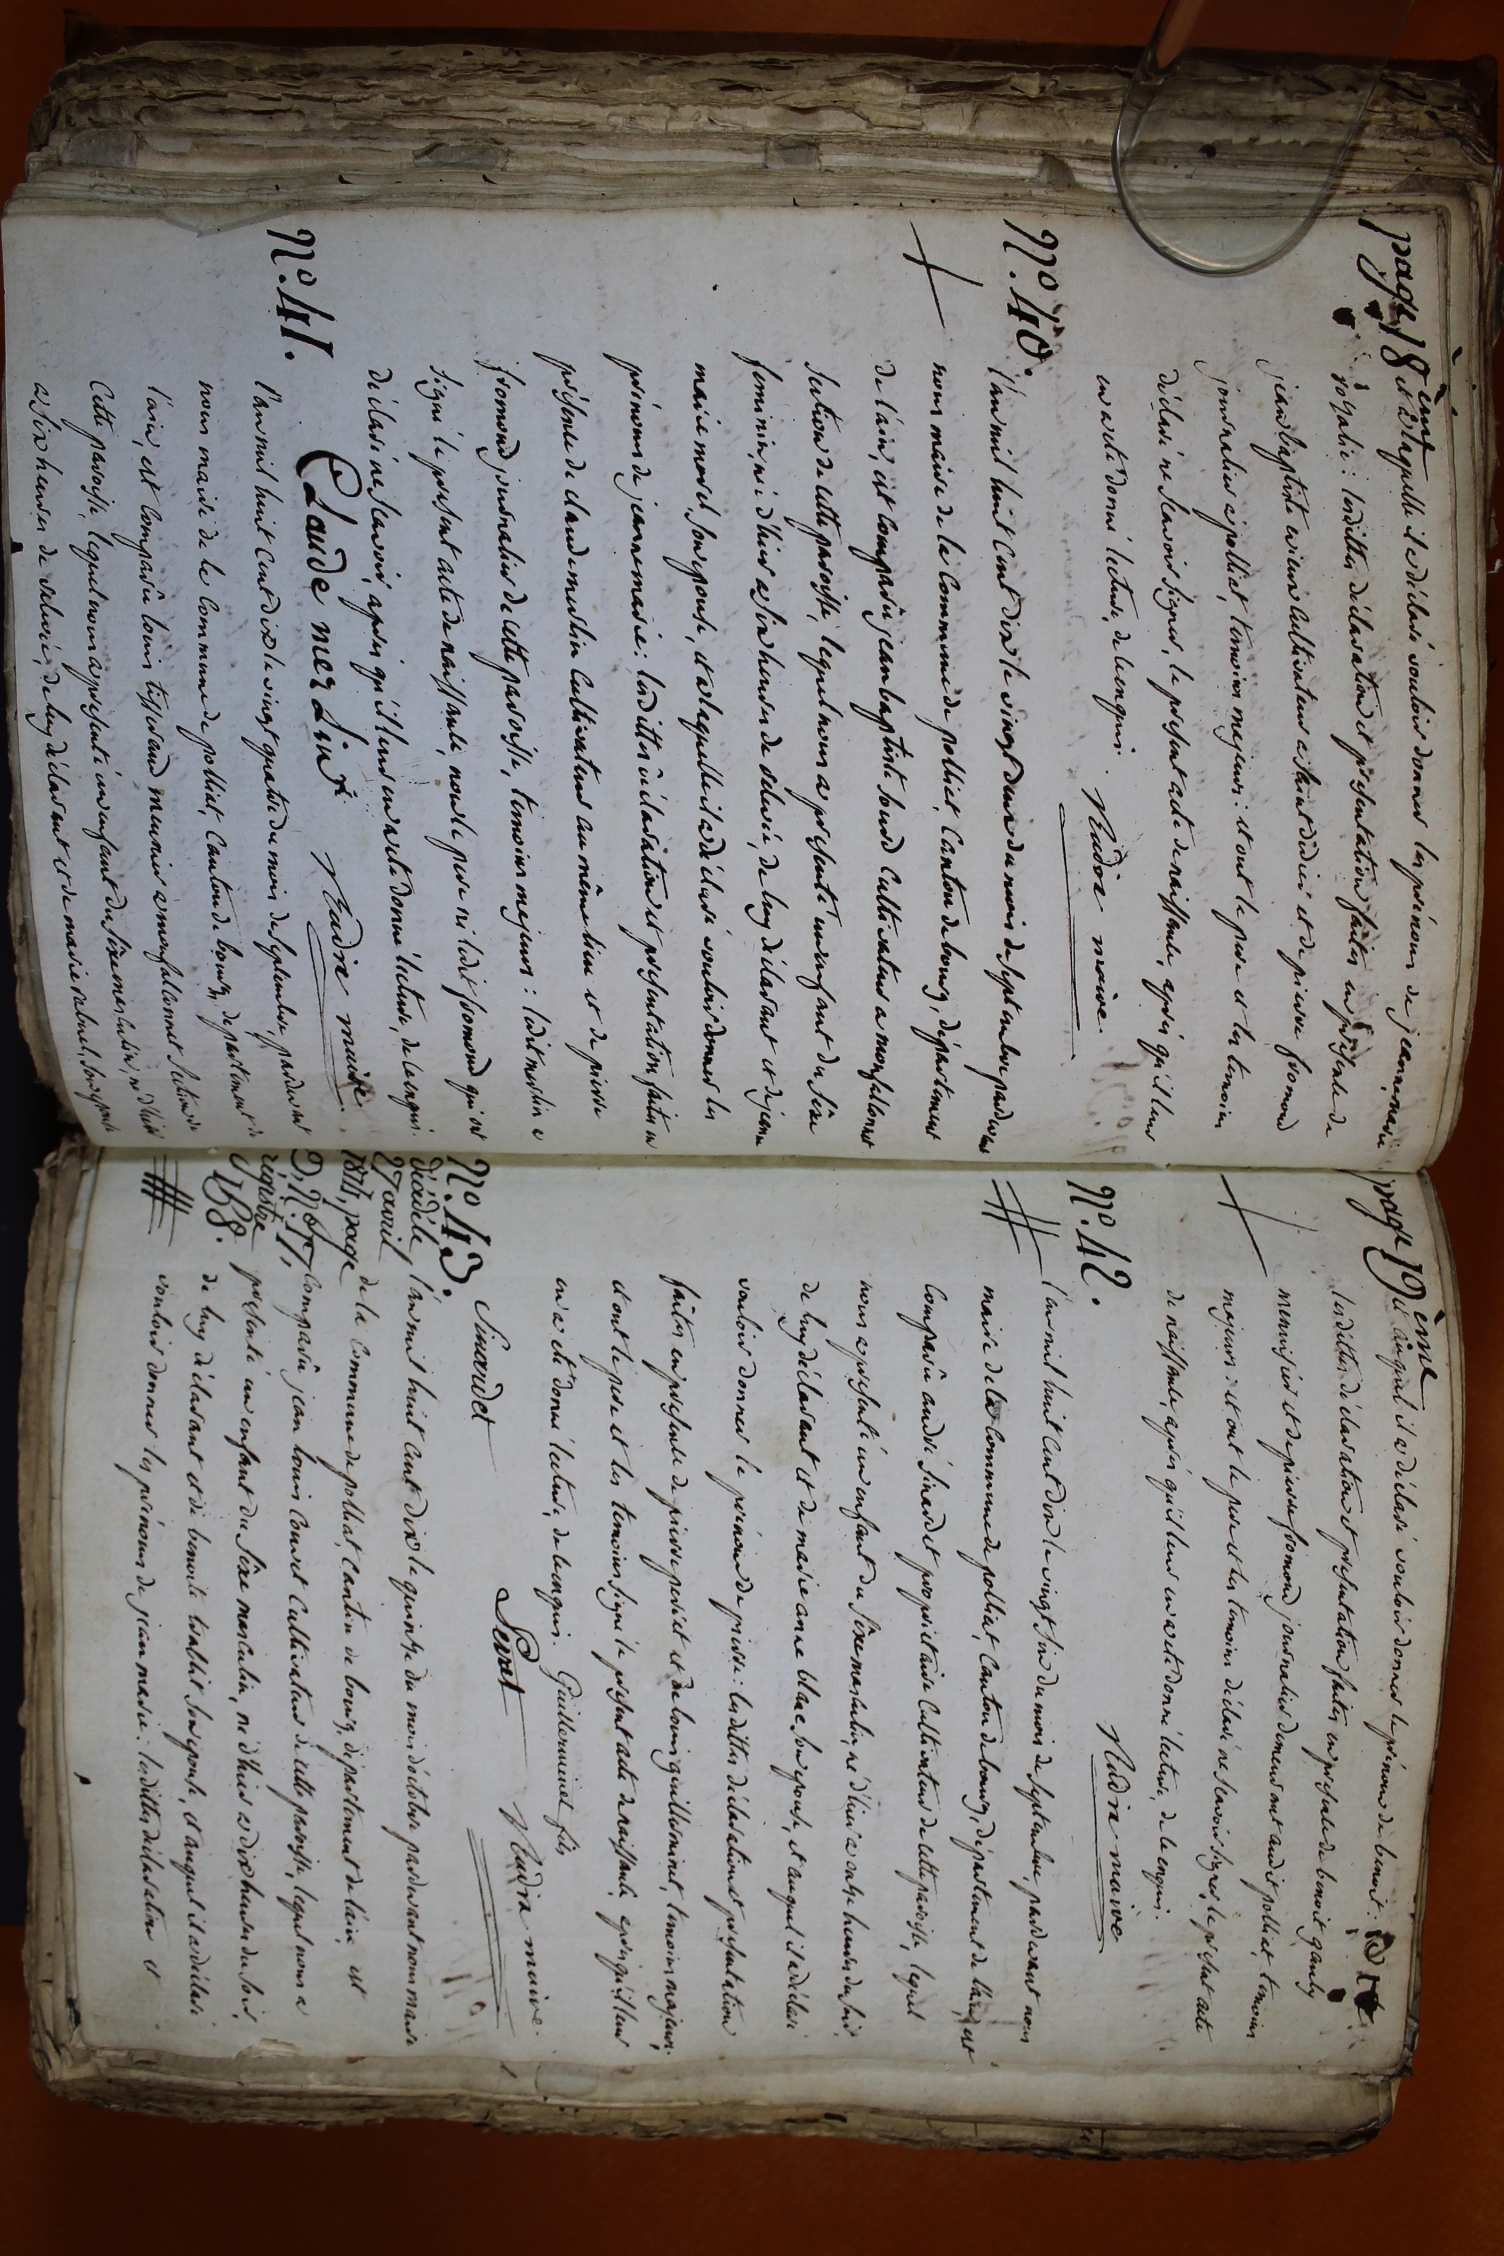 page 18ème
et à laquelle il a déclaré vouloir donner les prénoms de jeanne marie
rosalie : lesdittes déclaration et présentation faites en présence de
jean baptiste cultivateur et de pierre fromond
journalier à polliat, temoins majeurs : et ont le pere et les temoins
déclaré ne scavoir signer, le présent acte de naissance, après qu'il leur
en a été donné lecture, de ce enquis. Nadra maire.
N°. 40.
l'an mil huit cent dix le vingt deux du mois de septembre pardevant
nous maire de la Commune de polliat, canton de bourg, département
de l'ain, est comparu jean baptiste cultivateur a monfalconnet
section de cette paroisse, lequel nous a présenté un enfant du sèxe
feminin, né d'hier a six heures de relevée, de luy déclarant et de jeanne
marie morel son epouse, et a laquelle il a déclaré vouloir donner les
prénoms de jeanne marie : lesdittes déclaration et présentation faites en
présence de claude merlin cultivateur au même lieu et de pierre
fromond journalier de cette paroisse, temoins majeurs : ledit merlin a
signé le présent acte de naissance, non le pere ni ledit fromond qui ont
déclaré ne scavoir, après qu'il leur en a été donné lecture, de ce enquis.
Claude merlin Nadra maire.
N°. 41.
l'an mil huit cent dix le vingt quatre du mois de septembre, pardevant
nous maire de la Commune de polliat, Canton de bourg, département de
l'ain, est Comparu louis tisserand meunier a monfalconnet section de
Cette paroisse, lequel nous a présenté un enfant du sèxe masculin, né d'hier
a six heures de relevée, de luy déclarant et de marie son epouse
page 19ème
et auquel il a déclaré vouloir donner le prénom de benoit :
lesdittes déclaration et présentation faites en présence de benoit
menuisier et de pierre fromond journalier demeurant audit polliat, temoins
majeurs : et ont le pere et les temoins déclaré ne scavoir signer, le présent acte
de naissance, après qu'il leur en a été donné lecture, de ce enquis.
Nadra maire
N°. 42.
l'an mil huit cent dix le vingt six du mois de septembre, pardevant nous
maire de la Commune de polliat, Canton de bourg, département de l'ain, est
Comparu andré sirandet propriétaire Cultivateur de cette paroisse, lequel
nous a présenté un enfant du sèxe masculin, né d'hier a onze heures du soir,
de luy déclarant et de marie anne blanc son epouse, et auquel il a déclaré
vouloir donner le prénom de pierre : lesdittes déclaration et présentation
faites en présence de pierre perret et de louis guillerminet, temoins majeurs.
et ont le pere et les temoins signé le présent acte de naissance, après qu'il leur
en a été donné lecture, de ce enquis. Guillerminet fils
Siraudet Perret Nadra maire.
N°. 43.
décédé le
27 avril
1874, page
registre
l'an mil huit cent dix le quinze du mois d'octobre pardevant nous maire
de la Commune de polliat, Canton de bourg, département de l'ain, est
Comparu jean louis Convert Cultivateur de cette paroisse, lequel nous a
présenté un enfant du sèxe masculin, né d'hier a dix heures du soir,
de luy déclarant et de benoite son epouse, et auquel il a déclaré
vouloir donner les prénoms de jean marie : lesdittes déclaration et